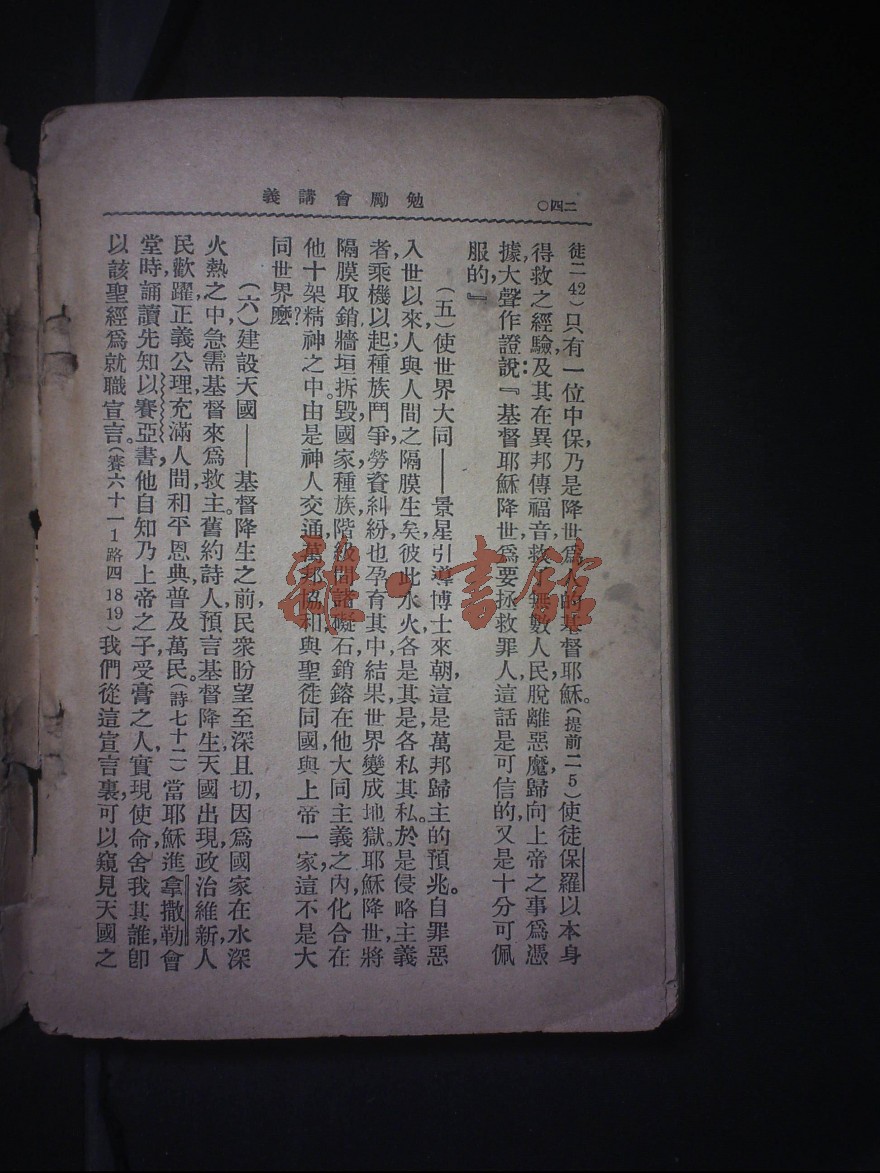 勉勵會講義
二四〇
徒二42)只有一位中保,乃是降世爲人的基督耶穌。(提前二5)使徒保羅以本身
得救之經驗,及其在異邦傳福音,救了無數人民脫離惡魔,歸向上帝之事爲憑
據,大聲作證說:『基督耶穌降世,爲要拯救罪人,這話是可信的,又是十分可佩
服的』
(五)使世界大同——景星引導博士來朝,這是萬邦歸主的預兆。自罪惡
入世以來,人與人間之隔膜生矣,彼此水火,各是其是,各私其私。於是侵略主義
者,乘機以起;種族鬥爭,勞資糾紛也孕育其中,結果世界變成地獄。耶穌降世,將
隔膜取銷,牆垣拆毀,國家,種族,階級間諸礙石,銷鎔在他大同主義之內,化合在
他十架精神之中。由是神人交通,萬邦協和,與聖徒同國,與上帝一家,這不是大
同世界麼?
(六)建設天國——基督降生之前,民衆盼望至深且切,因爲國家在水深
火熱之中,急需基督來爲救主。舊約詩人,預言基督降生,天國出現,政治維新,人
民歡躍,正義公理,充滿人間,和平恩典,普及萬民。(詩七十二)當耶穌進拿撒勒會
堂時,誦讀先知以賽亞書,他自知乃上帝之子,受膏之人,實現使命,舍我其誰,卽
以該聖經爲就職宣言。(賽六十一1路四1819)我們從這宣言裏,可以窺見天國之
雜·書館